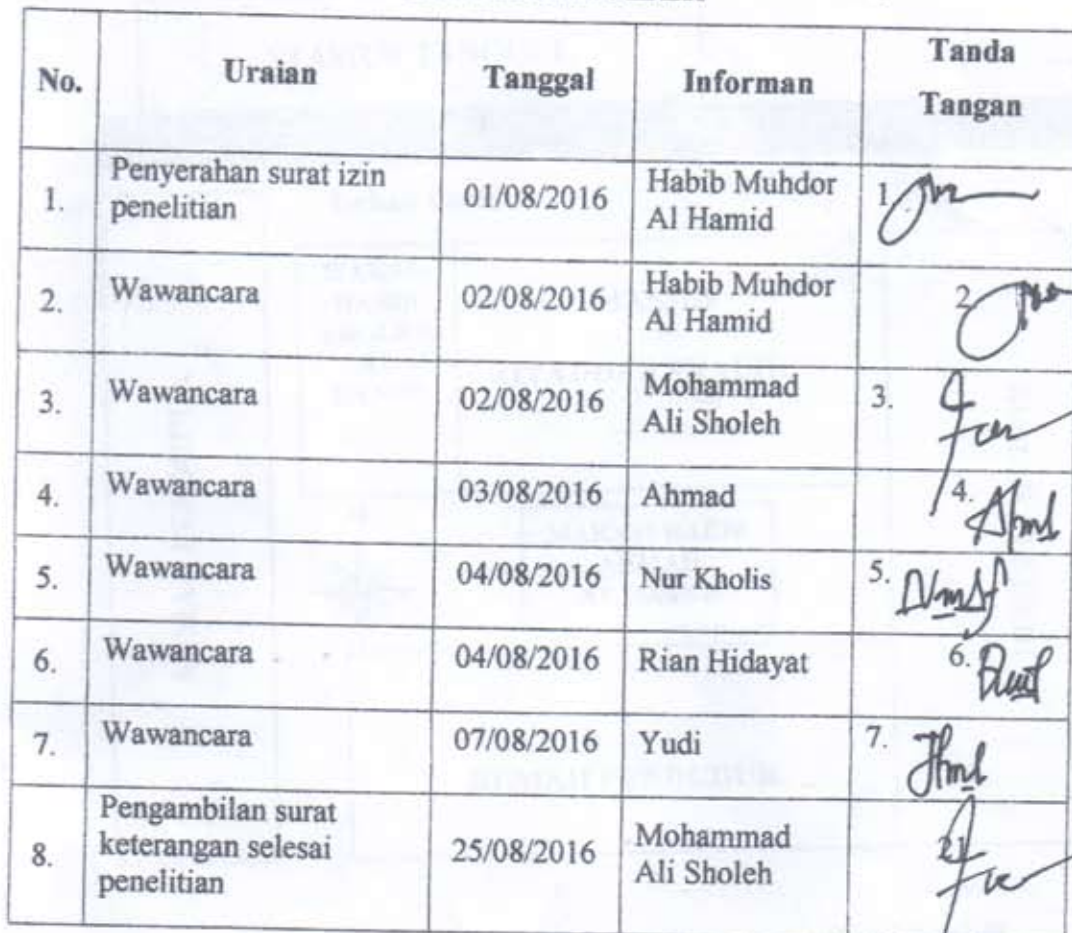 No. Uraian Tanggal Informan Tanda
Tangan
1. Penyerahan surat izin
penelitian 01/08/2016 Habib Muhdor
Al Hamid 1.
2. Wawancara 02/08/2016 Habib Muhdor
Al Hamid 2.
3. Wawancara 02/08/2016 Mohammad
Ali Sholeh 3.
4. Wawancara 03/08/2016 Ahmad 4.
5. Wawancara 04/08/2016 Nur Kholis 5.
6. Wawancara 04/08/2016 Rian Hidayat 6.
7. Wawancara 07/08/2016 Yudi 7.
8. Pengambilan surat
keterangan selesai
penelitian 25/08/2016 Mohammad
Ali Sholeh 21